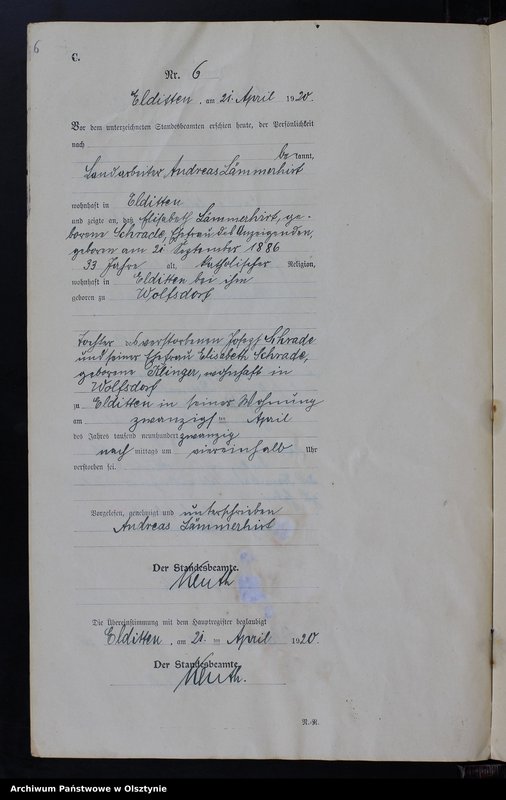 6
C.
Nr. 6
Elditten, am 21. April 1920.
Vor dem unterzeichneten Standesbeamten erschien heute, der Persönlichkeit
nach
be kannt,
Landarbeiter Andreas Lämmerhirt
wohnhaft in Elditten
und zeigte an, daß Elisabeth Lämmerhirt, ge-
borene Schrade, Ehefrau des Anzeigenden,
geboren am 21 September 1886
33 Jahre alt, katholischer Religion,
wohnhaft in Elditten bei ihm
geboren zu Wolfsdorf
Tochter des verstorbenen Josef Schrade
und seiner Ehefrau Elisabeth Schrade,
geborene Klinger, wohnhaft in
Wolfsdorf
zu Elditten in seiner Wohnung
am zwanzigsten April
des Jahres tausend neunhundert zwanzig
nach mittags um viereinhalb Uhr
verstorben sei.
Vorgelesen, genehmigt und unterschrieben
Andreas Lämmerhirt
Der Standesbeamte.
Die Übereinstimmung mit dem Hauptregister beglaubigt
Elditten, am 21. ten April 1920.
Der Standesbeamte.
N.-R.
Archiwum Państwowe w Olsztynie